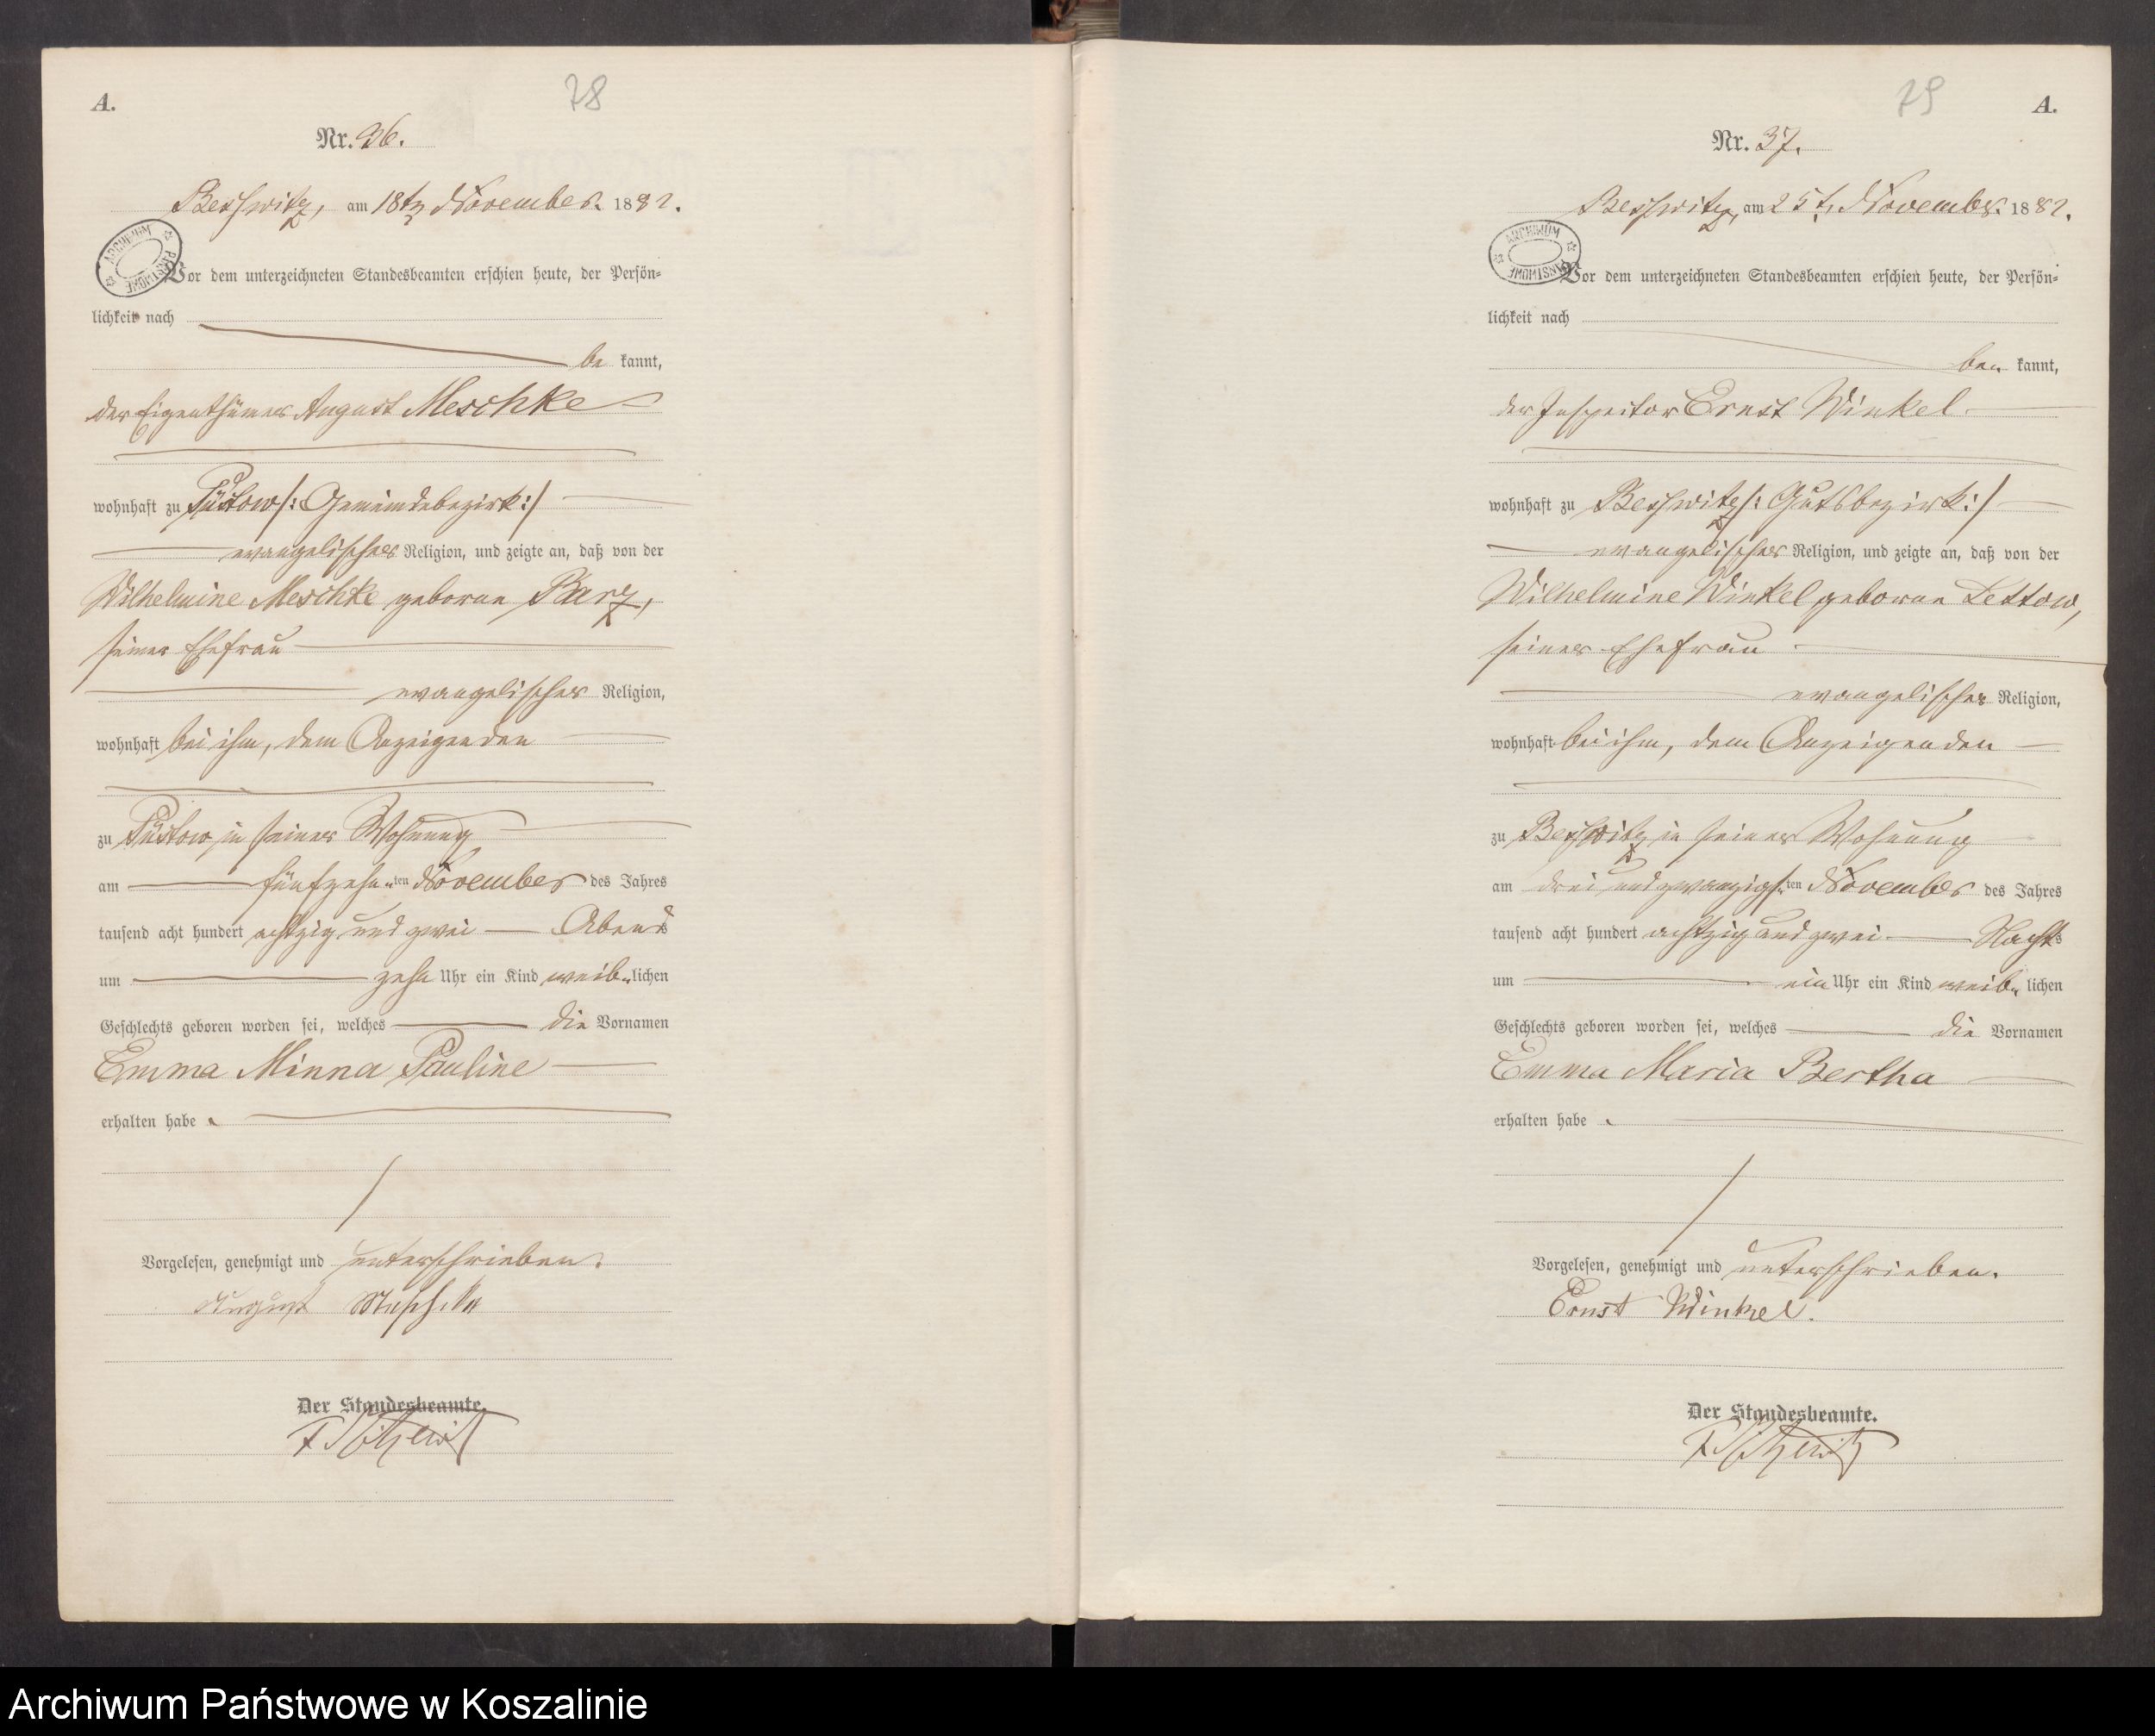 A.
78
Nr. 36.
Beßwitz, am 18tn November. 1882.
Vor dem unterzeichneten Standesbeamten erschien heute, der Persön-
lichkeit nach
be kannt,
der Eigenthümer August Meschke
wohnhaft zu Püstow /: Gemeindebezirk :/
evangelischer Religion, und zeigte an, daß von der
Wilhelmine Meschke geborne Barz,
seiner Ehefrau
evangelischer Religion,
wohnhaft bei ihm, dem Anzeigenden
zu Püstow, in seiner Wohnung
am fünfzehnten November des Jahres
tausend acht hundert achtzig und zwei Abends
um zehn Uhr ein Kind weiblichen
Geschlechts geboren worden sei, welches die Vornamen
Emma Minna Pauline
erhalten habe.
Vorgelesen, genehmigt und unterschrieben.
August Meschke
Der Standesbeamte.
ARCHIWUM PAŃSTWOWE
79
A.
Nr. 37.
Beßwitz, am 25t. November. 1882.
Vor dem unterzeichneten Standesbeamten erschien heute, der Persön-
lichkeit nach
be kannt,
der Inspector Ernst Winkel
wohnhaft zu Beßwitz /: Gutsbezirk :/
evangelischer Religion, und zeigte an, daß von der
Wilhelmine Winkel geborne Lettow,
seiner Ehefrau
evangelischer Religion,
wohnhaft bei ihm, dem Anzeigenden
zu Beßwitz in seiner Wohnung
am drei und zwanzigsten November des Jahres
tausend acht hundert achtzig und zwei Nachts
um ein Uhr ein Kind weiblichen
Geschlechts geboren worden sei, welches die Vornamen
Emma Maria Bertha
erhalten habe.
Vorgelesen, genehmigt und unterschrieben.
Ernst Winkel.
Der Standesbeamte.
ARCHIWUM PAŃSTWOWE
Archiwum Państwowe w Koszalinie